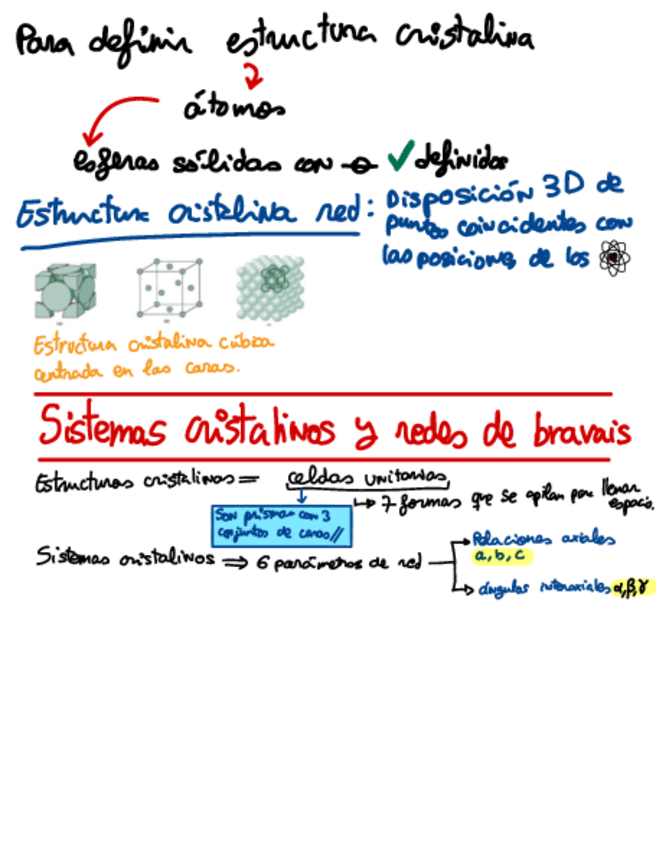 Para definir estructura cristalina
átomos
esferas sólidas con ⌀ ✓ definidos
Estructura cristalina red: Disposición 3D de
puntos coincidentes con
las posiciones de los
Estructura cristalina cúbica
centrada en las caras.
Sistemas cristalinos y redes de bravais
Estructuras cristalinas = celdas unitarias
↳ 7 formas que se apilan para llenar
espacio.
Son prismas con 3
conjuntos de caras//
Sistemas cristalinos ⇒ 6 parámetros de red
Relaciones axiales
a, b, c
ángulos interaxiales α, β, γ